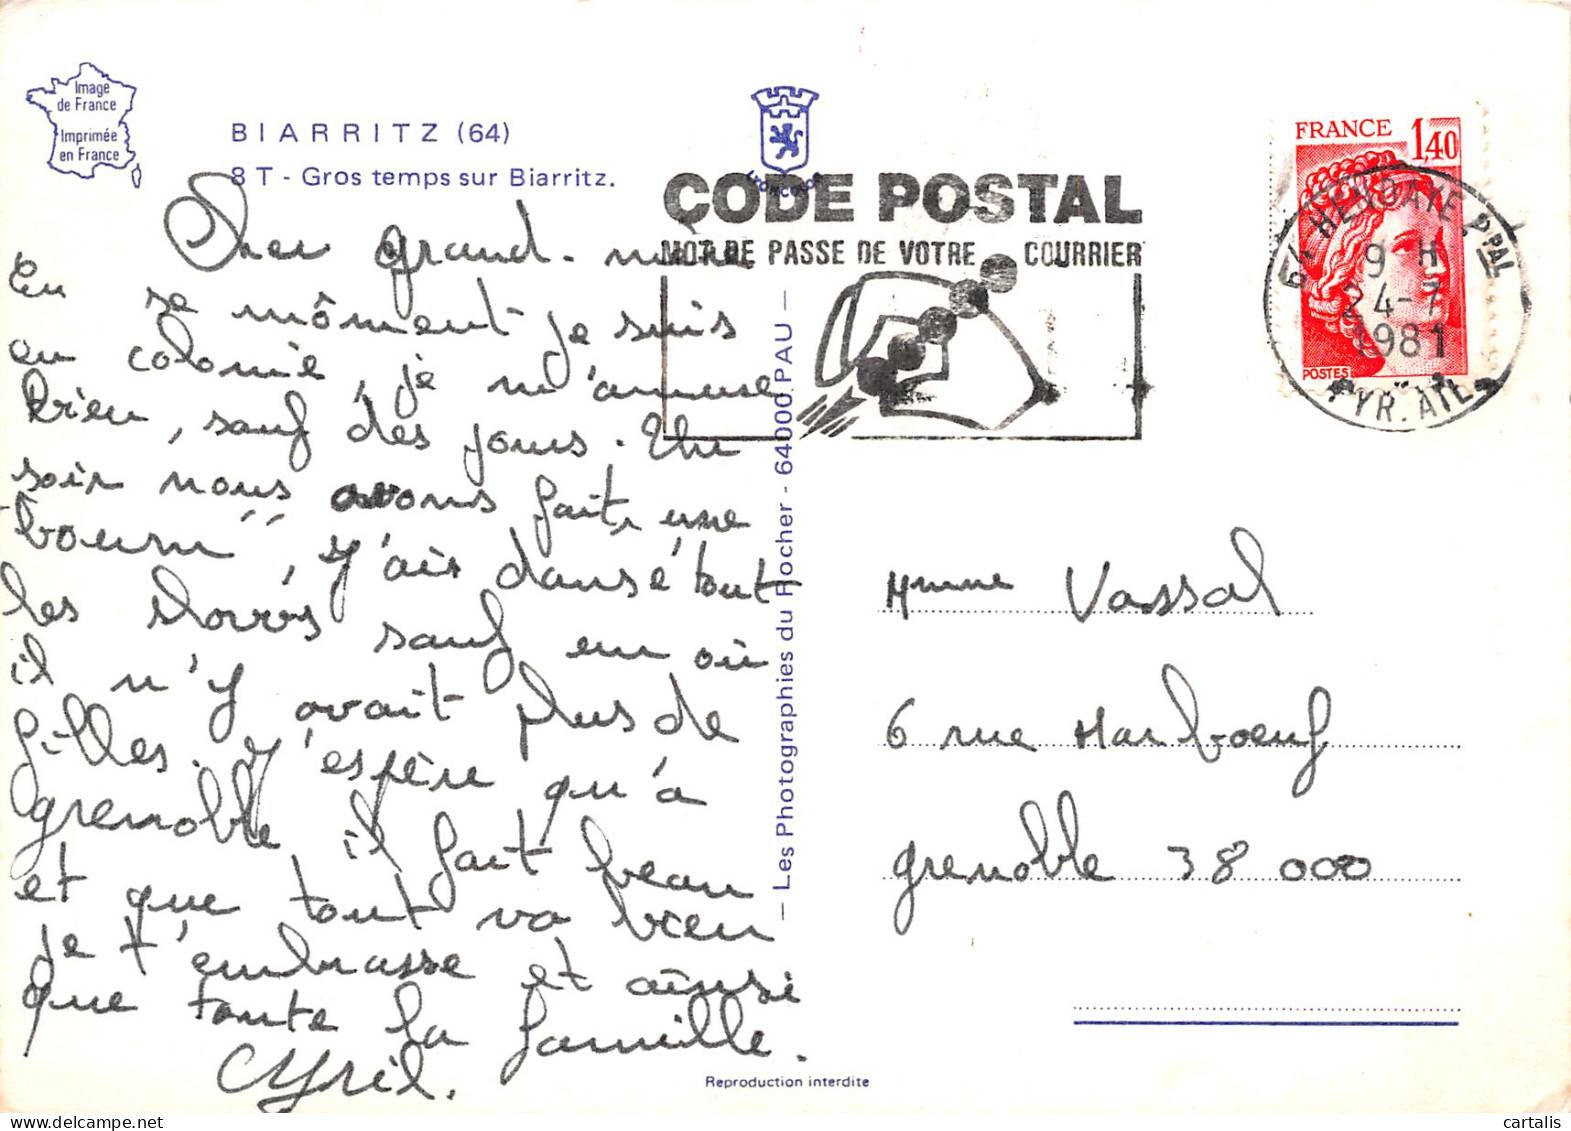 Image
de France
Imprimée
en France
BIARRITZ (64)
8 T - Gros temps sur Biarritz.
LYONCOLOR
CODE POSTAL
MOT DE PASSE DE VOTRE COURRIER
FRANCE 1,40
POSTES
64 HENDAYE PPAL
9 H
24-7
1981
PYR. ATL.
Cher grand-mère
En se môment je suis
en colonie, je m'amuse
bien, sauf des jours. Un
soir nous avons fait, une
"boum", J'ais dansé tout
les slows sauf un où
il n'y avait plus de
filles. J'espère qu'à
grenoble, il fait beau
et que tout va bien
Je t'embrasse et aïnsi
que toute la famille.
Cyril.
- Les Photographies du Rocher - 64000 PAU -
Mme Vassal
6 rue Marboeuf
grenoble 38 000
Reproduction interdite
cartalis